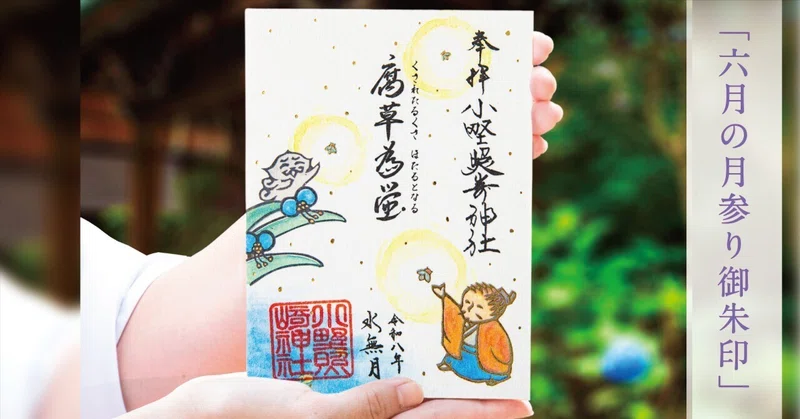 「六月の月参り御朱印」
奉拝 小野照崎神社
くされたるくさ ほたるとなる
腐草為蛍
令和八年
水無月
小野照
崎神社